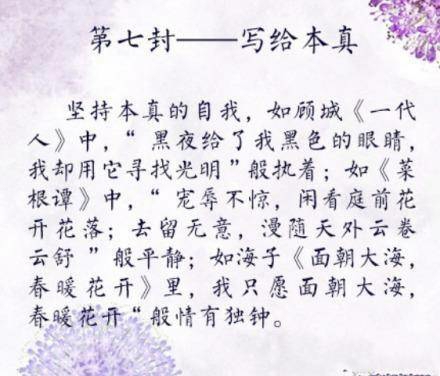 第七封——写给本真
坚持本真的自我，如顾城《一代
人》中，“ 黑夜给了我黑色的眼睛，
我却用它寻找光明”般执着；如《菜
根谭》中，“ 宠辱不惊，闲看庭前花
开花落；去留无意，漫随天外云卷
云舒 ”般平静；如海子《面朝大海，
春暖花开》里，我只愿面朝大海，
春暖花开“般情有独钟。